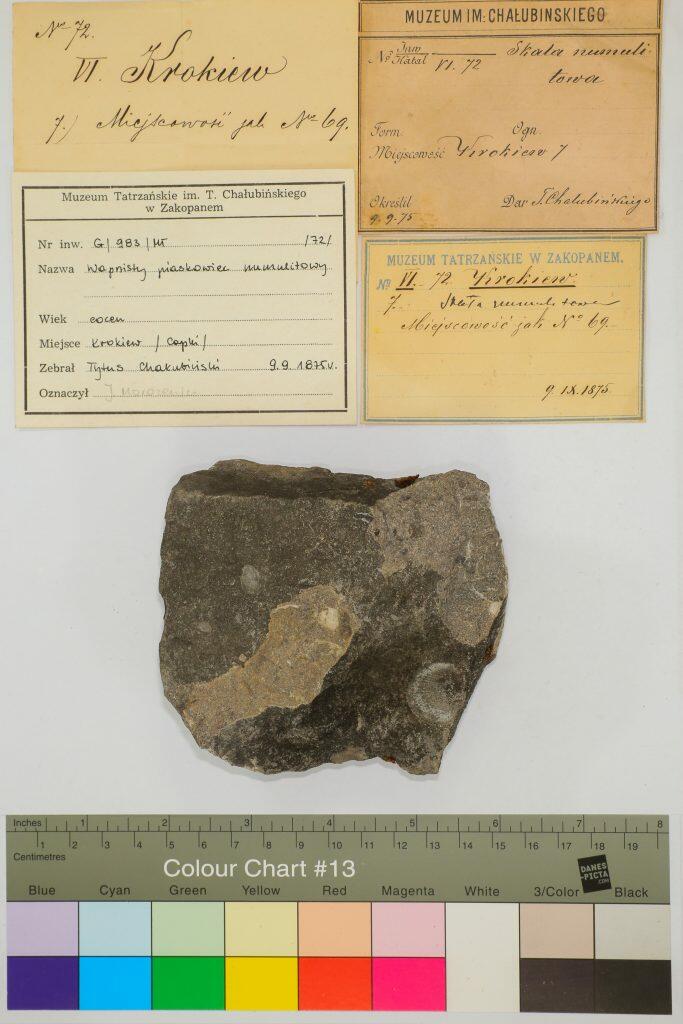 No 72.
VI. Krokiew
7.) Miejscowość jak No 69.
MUZEUM IM: CHAŁUBINSKIEGO
No Inw
Katal VI. 72 Skała numuli-
towa
Form. Ogn.
Miejscowość Krokiew 7
Określił Dar T. Chałubińskiego
9.9.75
Muzeum Tatrzańskie im. T. Chałubińskiego
w Zakopanem
Nr inw. G/983/MT /72/
Nazwa Wapnisty piaskowiec numulitowy
Wiek eocen
Miejsce Krokiew /Capki/
Zebrał Tytus Chałubiński 9.9.1875r.
Oznaczył J.
MUZEUM TATRZAŃSKIE W ZAKOPANEM.
No VI. 72 Krokiew
7. Skała numulitowa
Miejscowość jak No 69.
9.IX.1875
Inches 1 2 3 4 5 6 7 8
Centimetres 1 2 3 4 5 6 7 8 9 10 11 12 13 14 15 16 17 18 19
Colour Chart #13
DANES
-PICTA
.COM
Blue Cyan Green Yellow Red Magenta White 3/Color Black